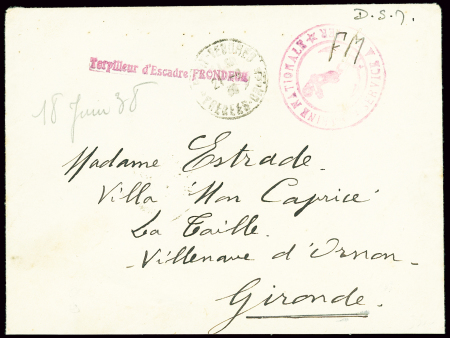 D.S.M.
FM
MARINE NATIONALE ★ SERVICE A LA MER
Torpilleur d'Escadre FRONDEUR
18 Juin 38
Madame Estrade.
Villa "Mon Caprice"
La Taille.
Villenave d'Ornon -
Gironde.